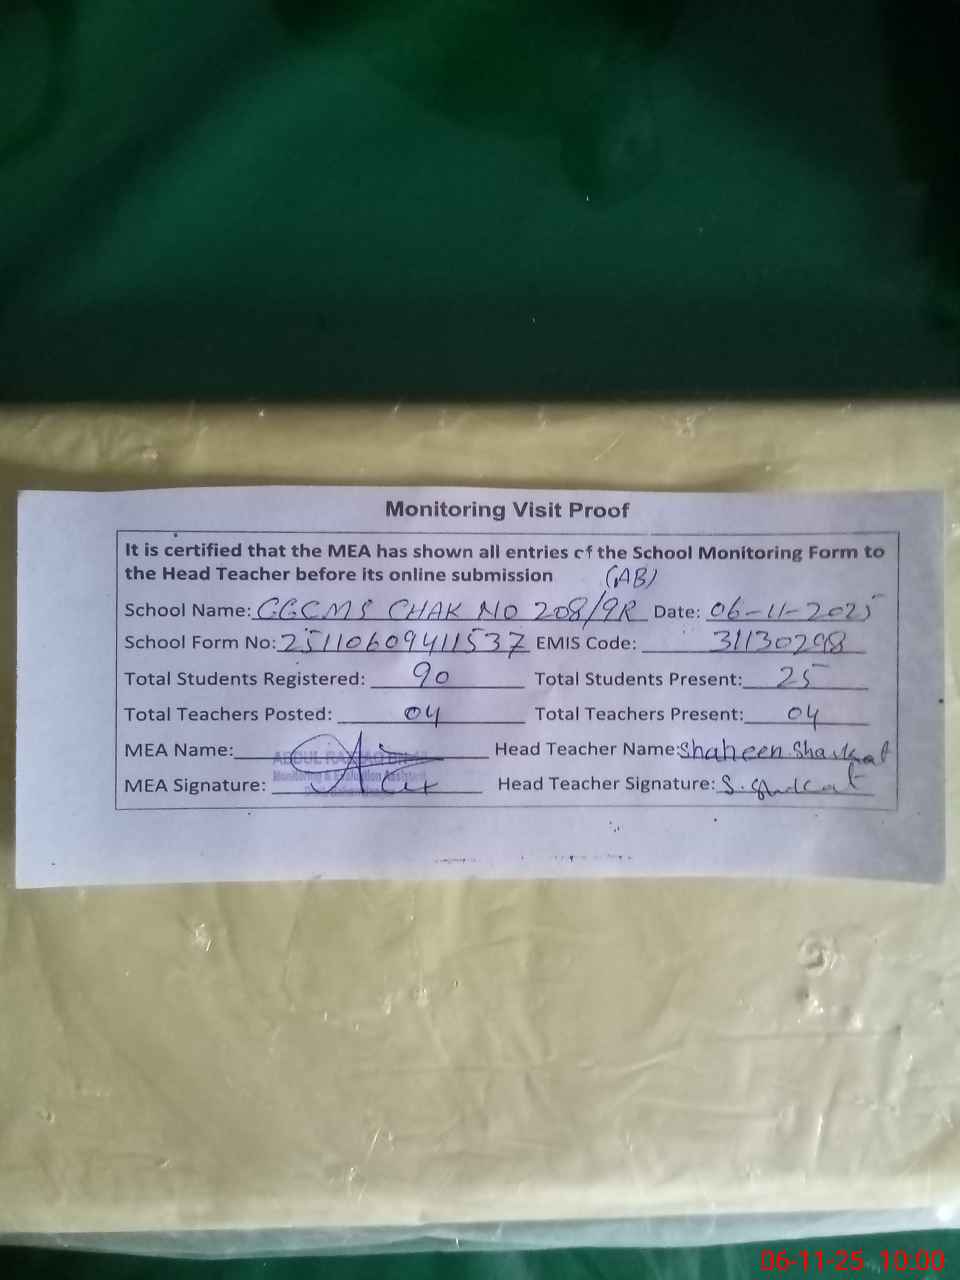 Monitoring Visit Proof
It is certified that the MEA has shown all entries of the School Monitoring Form to
the Head Teacher before its online submission (AB)
School Name: GGCMS CHAK NO 208/9R Date: 06-11-2025
School Form No: 25110609411537 EMIS Code: 31130298
Total Students Registered: 90 Total Students Present: 25
Total Teachers Posted: 04 Total Teachers Present: 04
MEA Name: ABDUL Head Teacher Name: Shaheen Shaukat
Monitoring & Evaluation Assistant
MEA Signature: Head Teacher Signature: S. Shukat
06-11-25 10:00